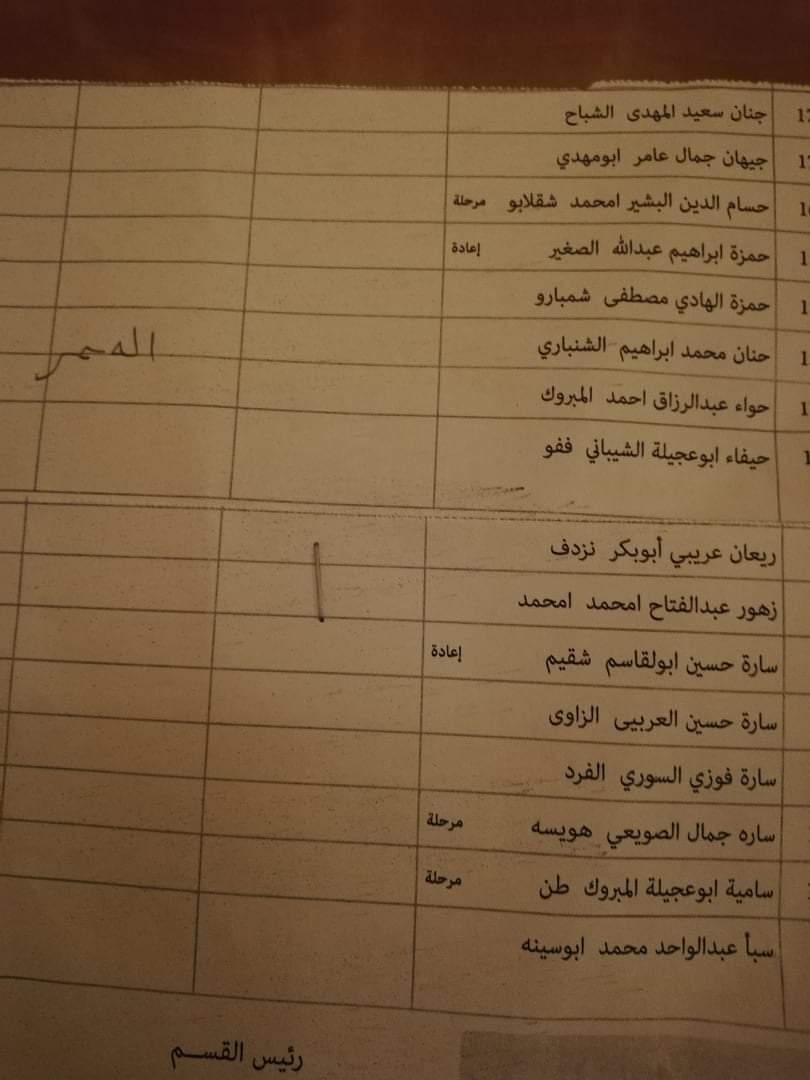 جنان سعيد المهدى الشباح
جيهان جمال عامر ابومهدي
حسام الدين البشير امحمد شقلابو مرحلة
حمزة ابراهيم عبدالله الصغير إعادة
حمزة الهادي مصطفى شمبارو
حنان محمد ابراهيم الشنباري
حواء عبدالرزاق احمد المبروك
حيفاء ابوعجيلة الشيباني ففو
ريعان عريبي أبوبكر نزدف
زهور عبدالفتاح امحمد امحمد
سارة حسين ابولقاسم شقيم إعادة
سارة حسين العربيى الزاوى
سارة فوزي السوري الفرد
ساره جمال الصويعي هويسه مرحلة
سامية ابوعجيلة المبروك طن مرحلة
سبأ عبدالواحد محمد ابوسينه
رئيس القســم